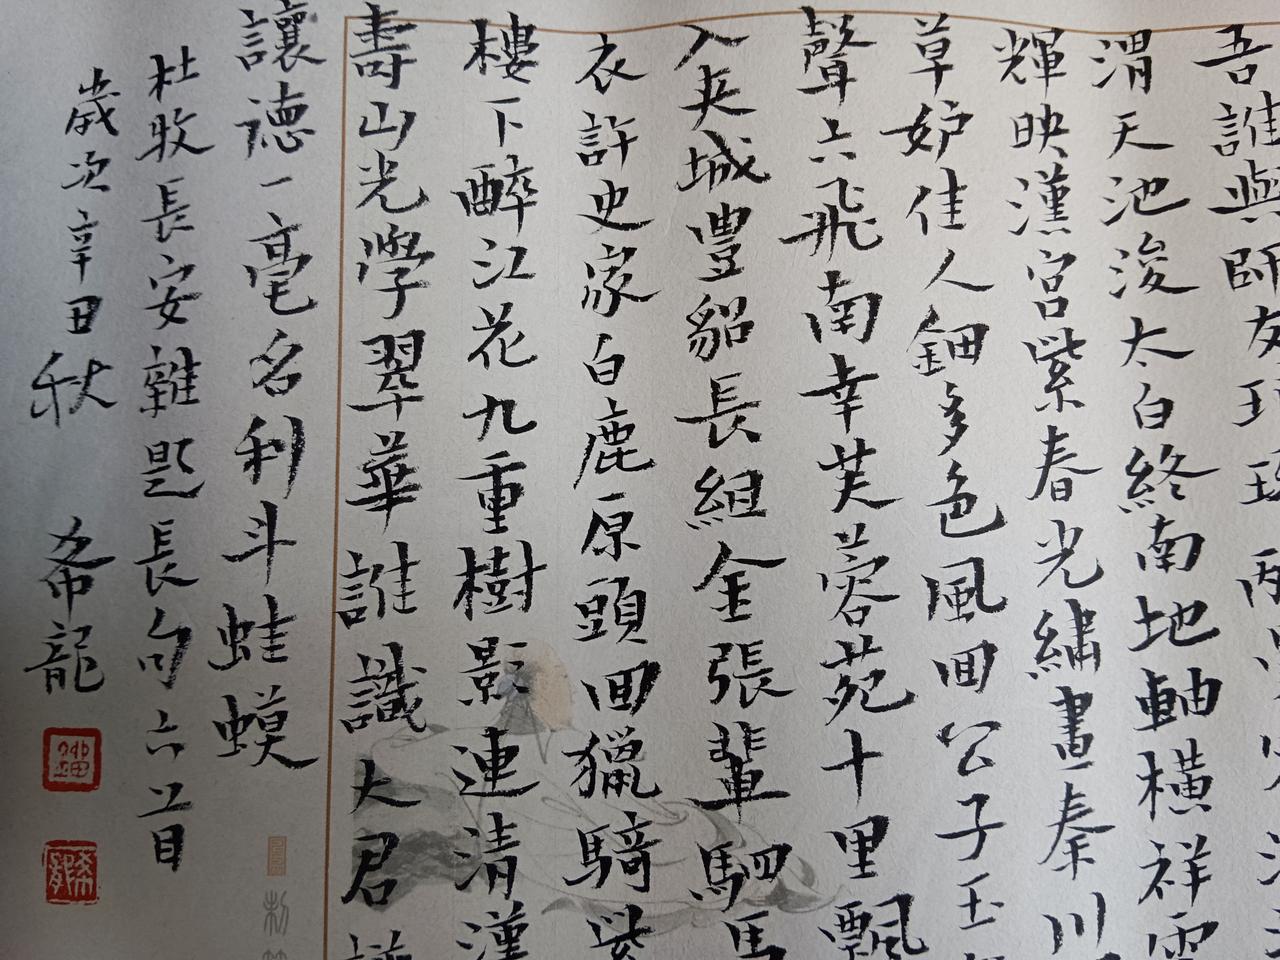 吾誰與師友
渭天池浚太白終南地軸橫祥雲
輝映漢宮紫春光繡畫秦川
草妒佳人鈿朵色風回公子玉
聲六飛南幸芙蓉苑十里飄
入夾城豐貂長組金張輩駟馬
衣許史家白鹿原頭回獵騎紫
樓下醉江花九重樹影連清漢
壽山光學翠華誰識大君
讓德一毫名利斗蛙蟆
杜牧長安雜題長句六首
歲次辛丑秋 希龍
希龍